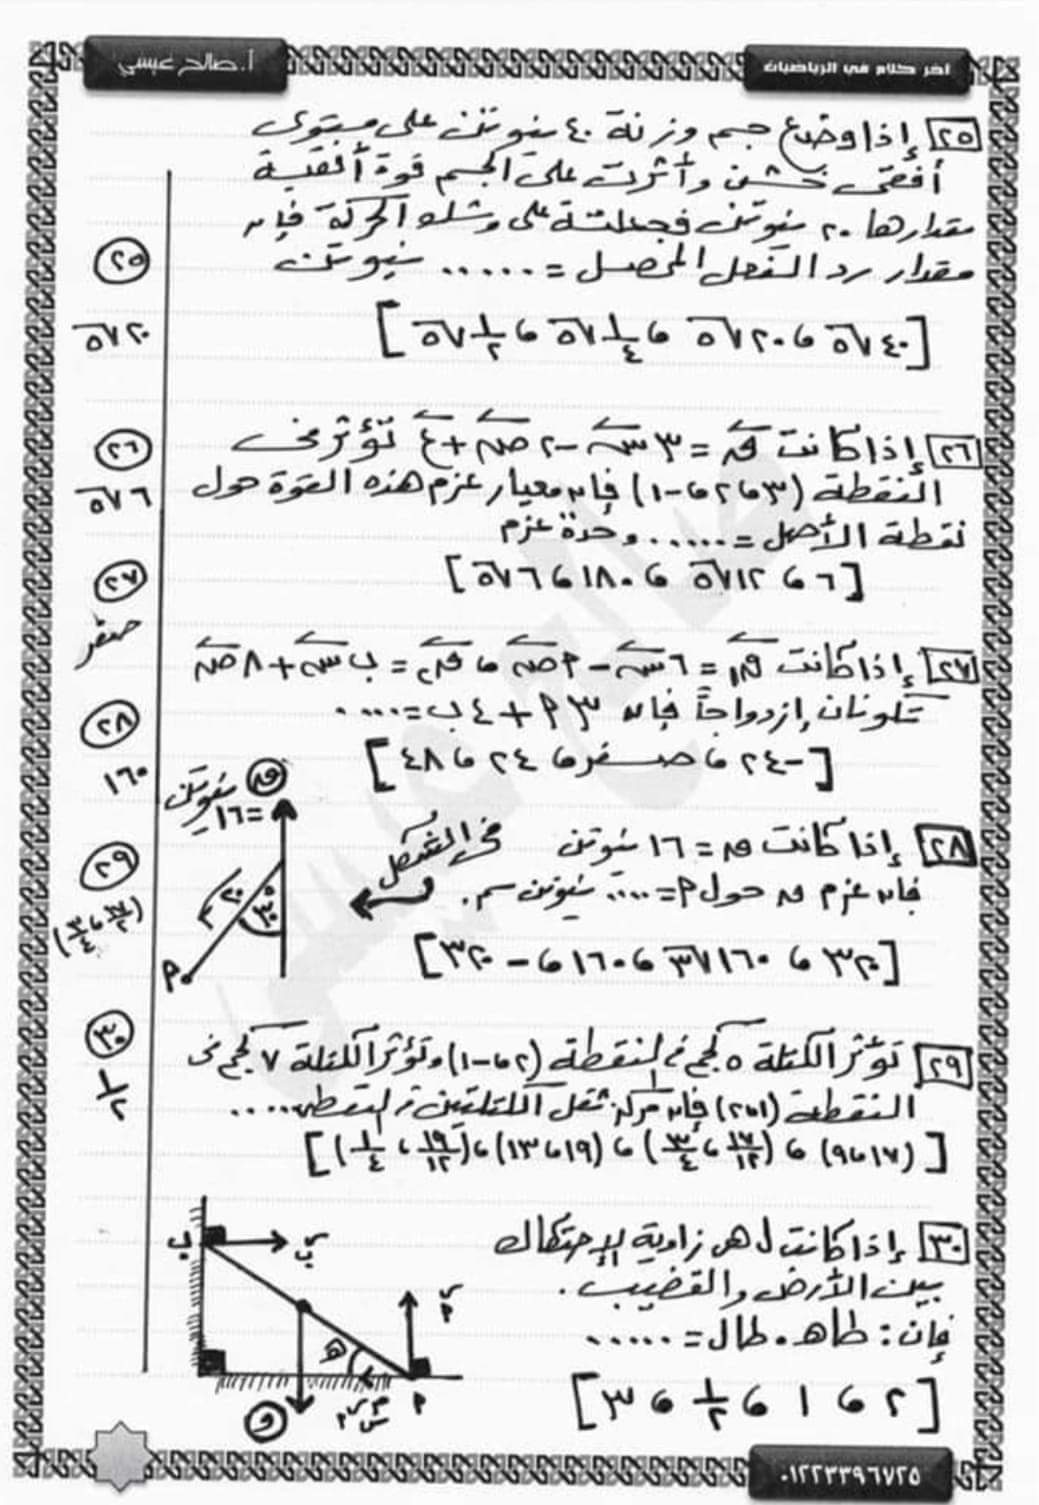 أ. صالح عيسي
آخر كلام في الرياضيات
٢٥ إذا وضع جسم وزنة ٤٠ نيوتن على مستوى
أفقى خشن وأثرت على الجسم قوة أفقية
مقدارها ٢٠ نيوتن فجعلتة على وشك الحركة فإن
مقدار رد الفعل المحصل = ...... نيوتن
[ ٤٠√٥ ، ٢٠√٥ ، ١/٤√٥ ، ١/٢√٥ ]
٢٥
٢٠√٥
٢٦ إذا كانت ق = ٣ س - ٢ ص + ع تؤثر فى
النقطة (٣ ، ٢ ، -١) فإن معيار عزم هذه القوة حول
نقطة الأصل = ...... وحدة عزم
[ ٦ ، ١٢√٥ ، ١٨٠ ، ٦√٥ ]
٢٦
٦√٥
٢٧ إذا كانت ق١ = ٦ س - ٢ ص ، ق٢ = ب س + ٨ ص
تكونان إزدواجاً فإن ٣ م + ٤ ب = .....
[ -٢٤ ، صفر ، ٢٤ ، ٤٨ ]
٢٧
صفر
٢٨ إذا كانت ق = ١٦ نيوتن فى الشكل
فإن عزم ق حول م = ..... نيوتن سم.
[ ٣٢٠ ، ١٦٠√٣ ، ١٦٠ ، -٣٢٠ ]
٢٨
١٦٠
ق = ١٦ نيوتن
٢٠ سم
٣٠°
م
٢٩ تؤثر الكتلة ٥ كجم فى النقطة (٢ ، -١) وتؤثر الكتلة ٧ كجم فى
النقطة (١ ، ٢) فإن مركز ثقل الكتلتين النقطة .....
[ (١٧ ، ٩) ، (١٧/١٢ ، ٣/٤) ، (١٩ ، ١٣) ، (١٩/١٢ ، ١/٤) ]
٢٩
(١٧/١٢ ، ٣/٤)
٣٠ إذا كانت ل هى زاوية الإحتكاك
بين الأرض والقضيب.
فإن: طاهـ . طال = ......
[ ٢ ، ١ ، ١/٢ ، ٣ ]
٣٠
١/٢
ب
ر ب
ر م
هـ
و
م
٠١٢٢٣٣٩٦٧٢٥